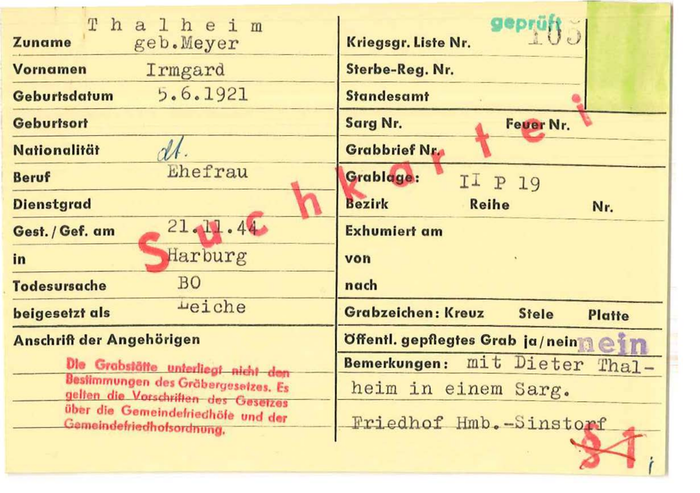 Zuname T h a l h e i m
geb.Meyer
Vornamen Irmgard
Geburtsdatum 5.6.1921
Geburtsort
Nationalität dt.
Beruf Ehefrau
Dienstgrad
Gest./Gef. am 21.11.44
in Harburg
Todesursache BO
beigesetzt als Leiche
Anschrift der Angehörigen
Die Grabstätte unterliegt nicht den
Bestimmungen des Gräbergesetzes. Es
gelten die Vorschriften des Gesetzes
über die Gemeindefriedhöfe und der
Gemeindefriedhofsordnung.
Suchkartei
geprüft
Kriegsgr. Liste Nr. 105
Sterbe-Reg. Nr.
Standesamt
Sarg Nr. Feuer Nr.
Grabbrief Nr.
Grablage: II P 19
Bezirk Reihe Nr.
Exhumiert am
von
nach
Grabzeichen: Kreuz Stele Platte
Öffentl. gepflegtes Grab ja/nein nein
Bemerkungen: mit Dieter Thal-
heim in einem Sarg.
Friedhof Hmb.-Sinstorf
§ 1